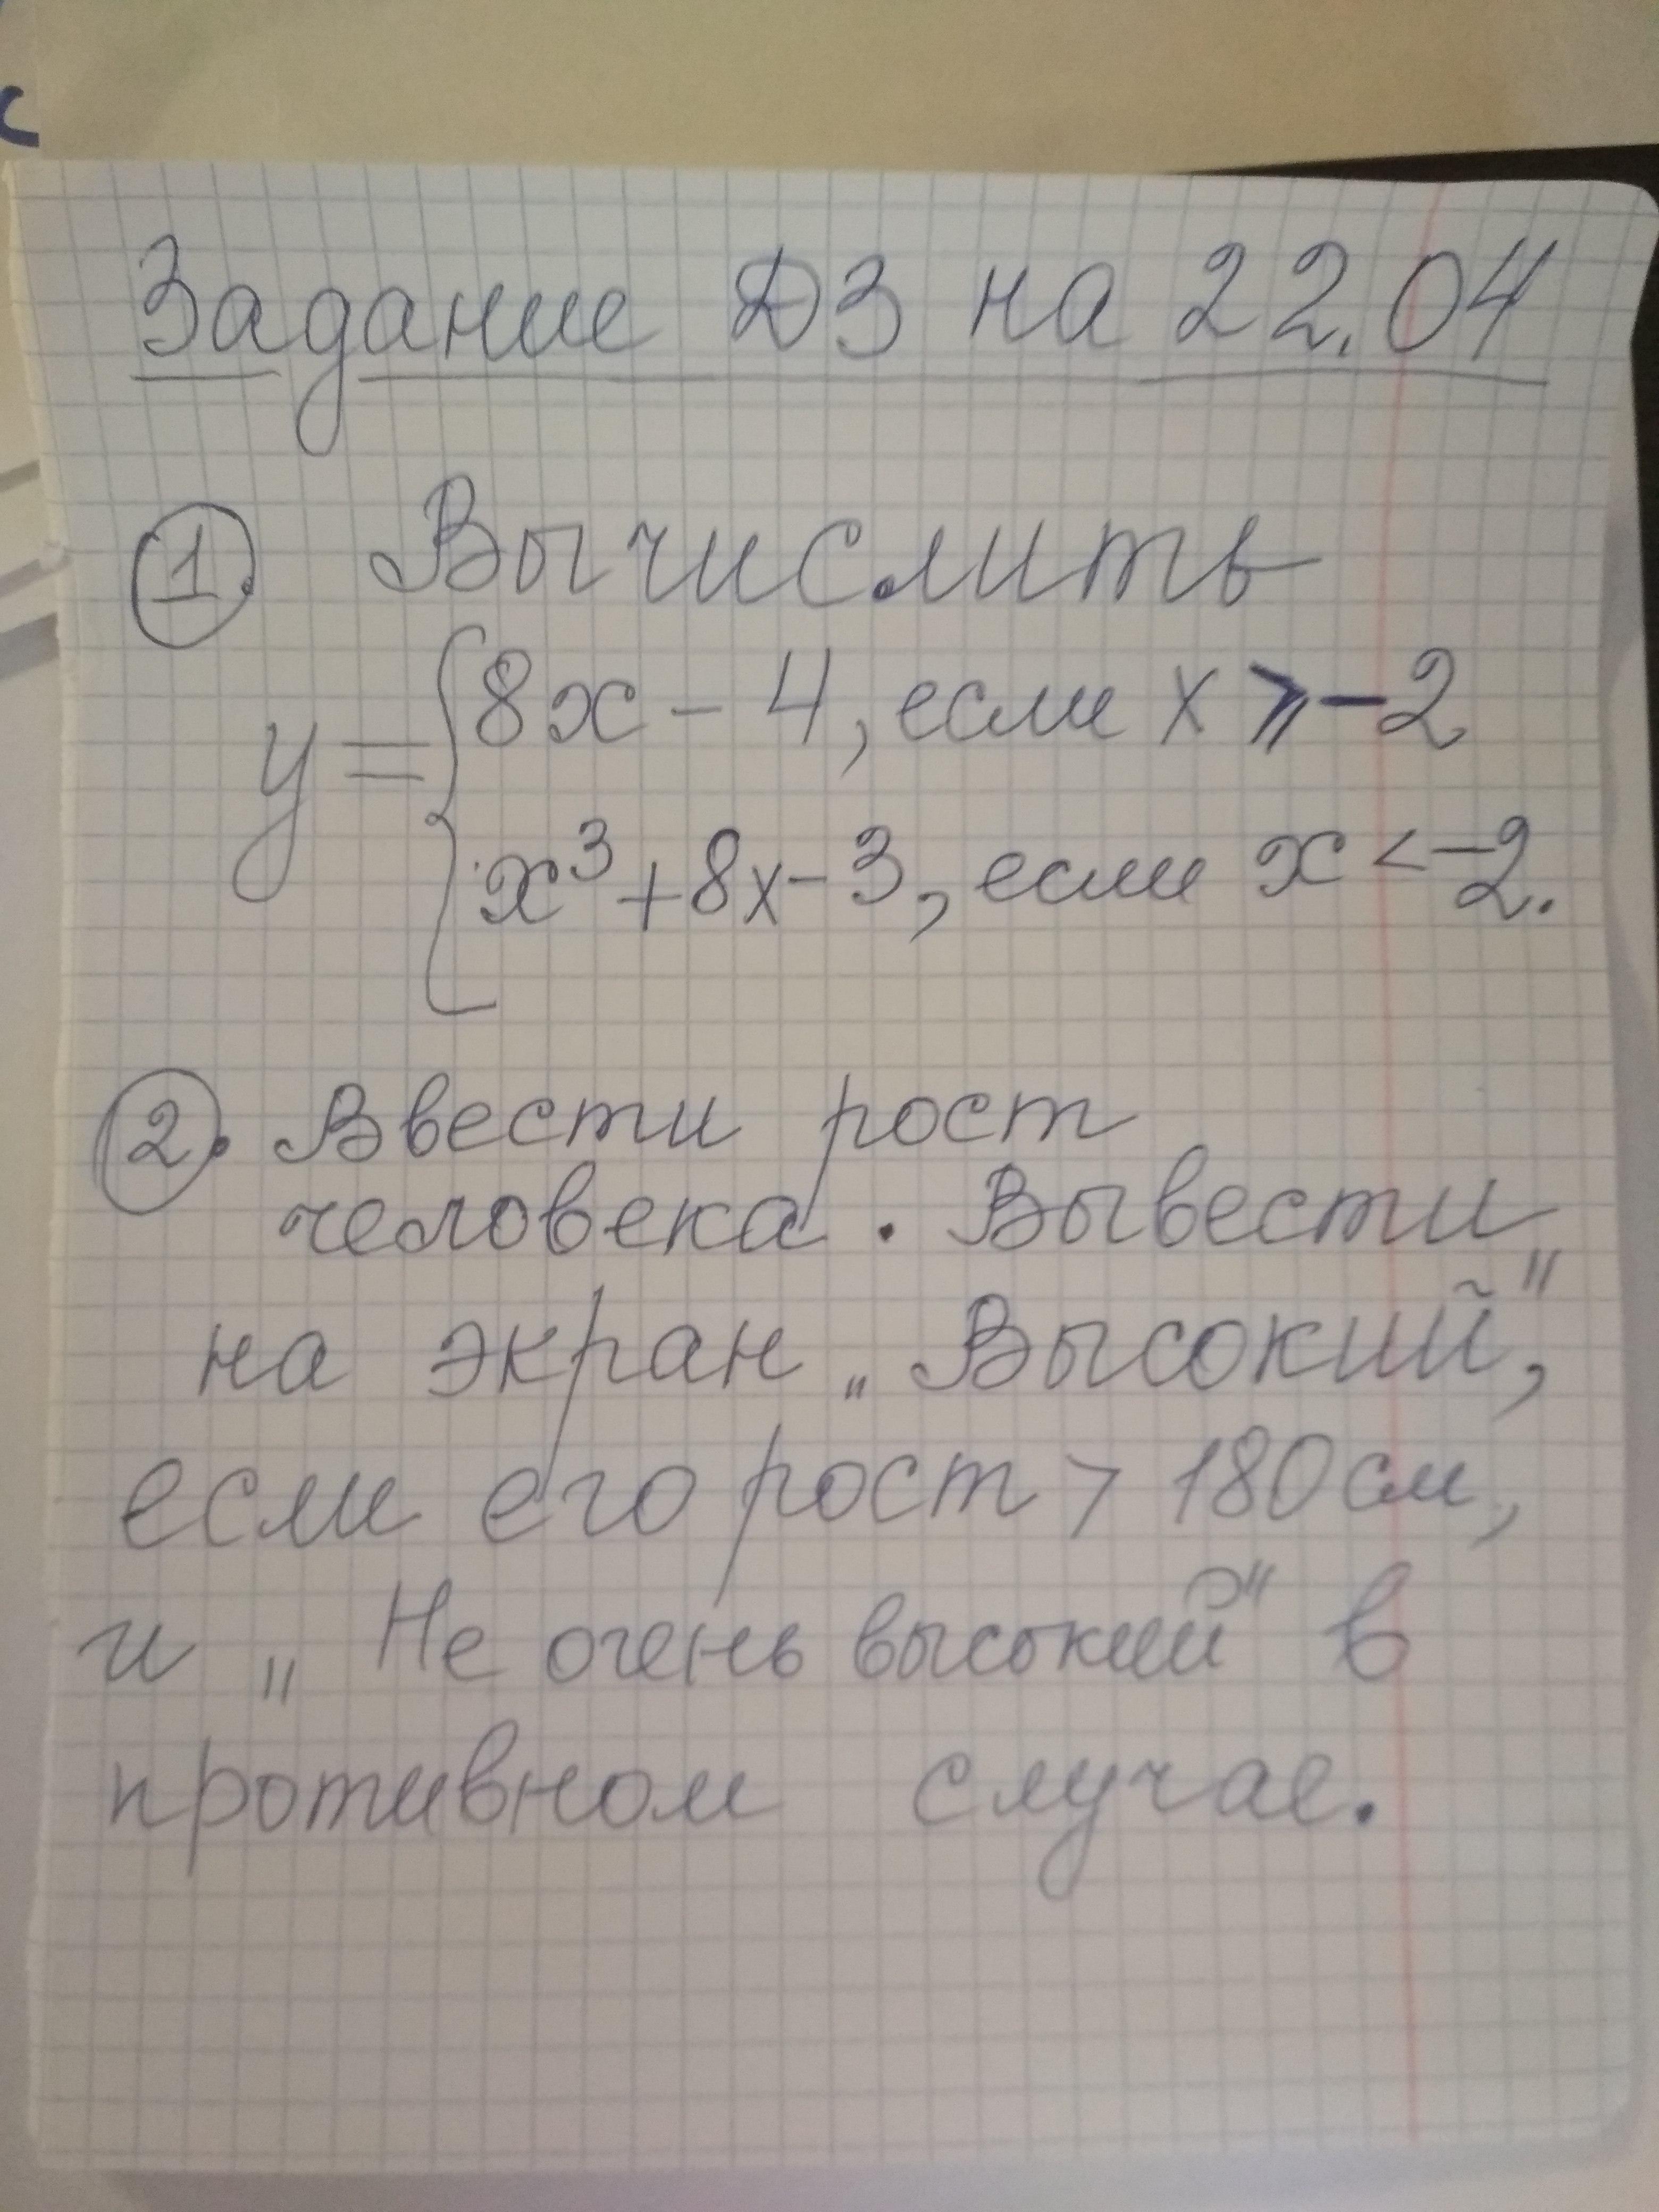 с
Задание ДЗ на 22.04
1. Вычислить
y = { 8x - 4, если x ⩾ -2
x³ + 8x - 3, если x < -2.
2. Ввести рост
человека. Вывести
на экран „Высокий",
если его рост > 180 см,
и „Не очень высокий" в
противном случае.